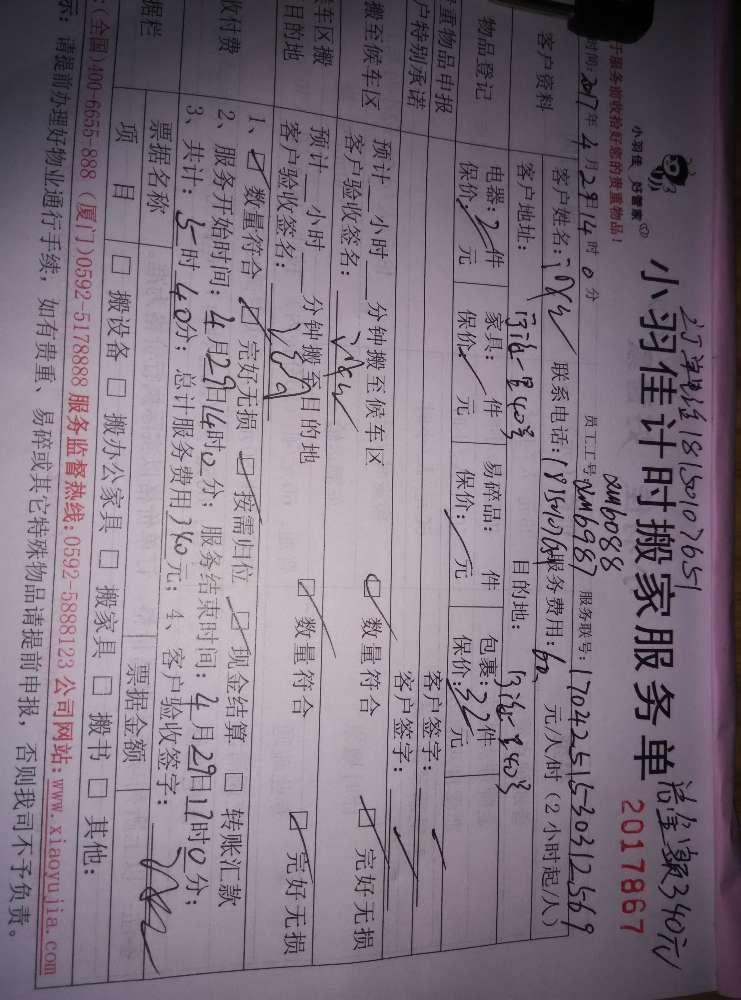 总金额340元
小羽佳 好管家
小羽佳计时搬家服务单 2017867
于服务前收拾好您的贵重物品!
时间: 2017年4月29 14时0分 员工工号 XM6987 XM6088 服务联号: 1704251530312569
客户资料 客户姓名: 联系电话: 服务费用: 60 元/人/时(2小时起/人)
客户地址: 目的地:
物品登记 电器: 2件 家具: 件 易碎品: 件 包裹: 32件
保价: 元 保价: 元 保价: 元 保价: 元
重物品申报 客户签字:
户特别承诺 客户签字:
搬至候车区 预计 小时 分钟搬至候车区 数量符合 完好无损
客户验收签名:
车区搬 预计 小时 分钟搬至目的地 数量符合 完好无损
目的地 客户验收签名:
收付费 1、数量符合 完好无损 按需归位 现金结算 转账汇款
2、服务开始时间: 4月29日14时0分; 服务结束时间: 4月29日17时0分;
3、共计: 5时40分; 总计服务费用340元; 4、客户验收签字:
据栏 票据名称 票据金额
项目 搬设备 搬办公家具 搬家具 搬书 其他:
:(全国)400-6655-888 (厦门)0592-5178888 服务监督热线:0592-5888123 公司网站:www.xiaoyujia.com
示: 请提前办理好物业通行手续, 如有贵重、易碎或其它特殊物品请提前申报, 否则我司不予负责。